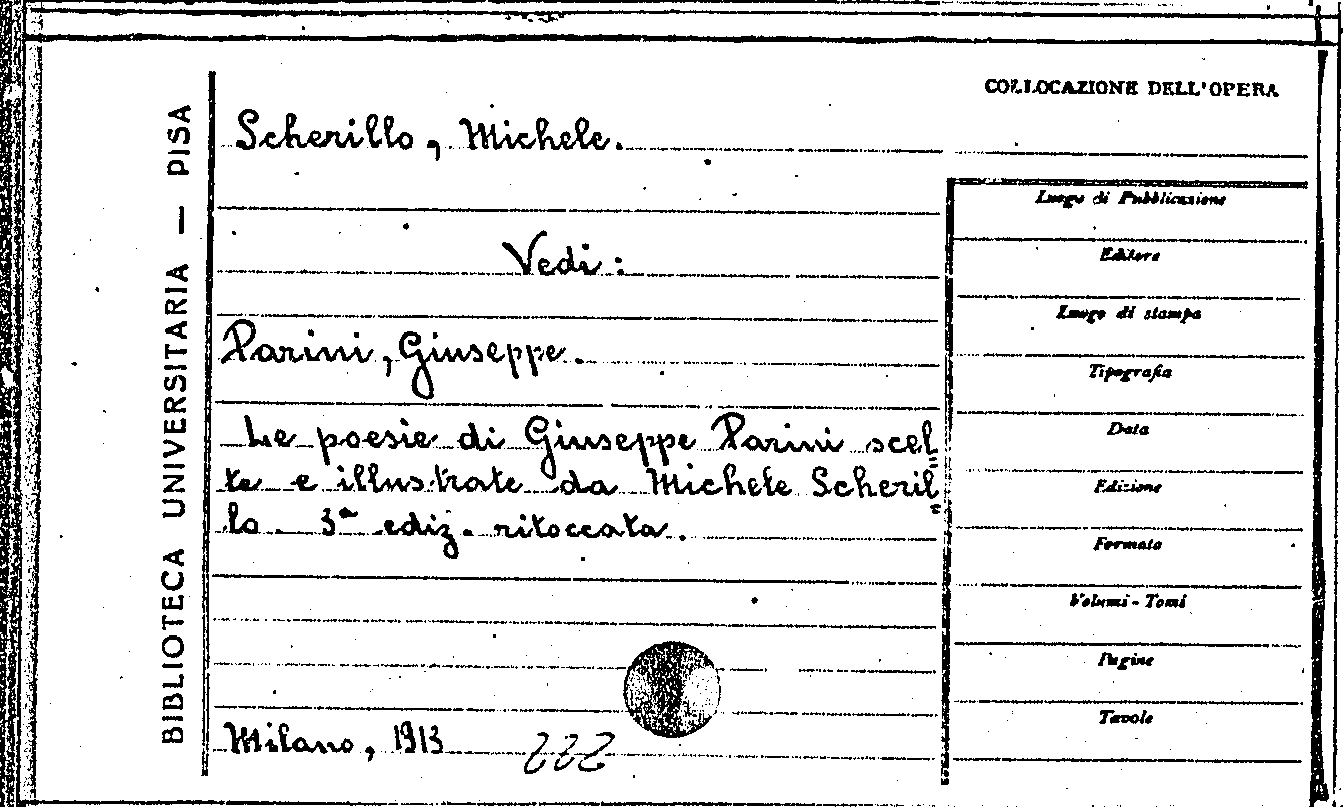 BIBLIOTECA UNIVERSITARIA — PISA
COLLOCAZIONE DELL'OPERA
Scherillo, Michele.
Vedi:
Parini, Giuseppe.
Le poesie di Giuseppe Parini scel=
te e illustrate da Michele Scheril=
lo. 3ª ediz. ritoccata.
Milano, 1913
222
Luogo di Pubblicazione
Editore
Luogo di stampa
Tipografia
Data
Edizione
Formato
Volumi - Tomi
Pagine
Tavole